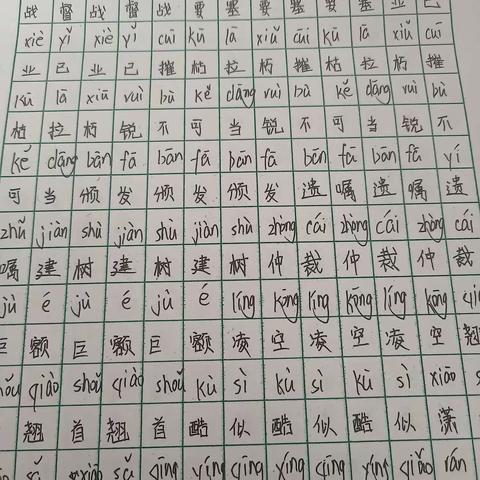 战 督 战 督 战 要 塞 要 塞 要 塞 业 已
xiè yǐ xiè yǐ cuī kū lā xiǔ cuī kū lā xiǔ cuī
业 已 业 已 摧 枯 拉 朽 摧 枯 拉 朽 摧
kū lā xiǔ ruì bù kě dāng ruì bù kě dāng ruì bù
枯 拉 朽 锐 不 可 当 锐 不 可 当 锐 不
kě dāng bān fā bān fā bān fā bān fā bān fā yí
可 当 颁 发 颁 发 颁 发 遗 嘱 遗 嘱 遗
zhǔ jiàn shù jiàn shù jiàn shù zhòng cái zhòng cái zhòng cái
嘱 建 树 建 树 建 树 仲 裁 仲 裁 仲 裁
jù é jù é jù é líng kōng líng kōng líng kōng
巨 额 巨 额 巨 额 凌 空 凌 空 凌 空 翘
shǒu qiào shǒu qiào shǒu kù sì kù sì kù sì xiāo
翘 首 翘 首 酷 似 酷 似 酷 似 潇